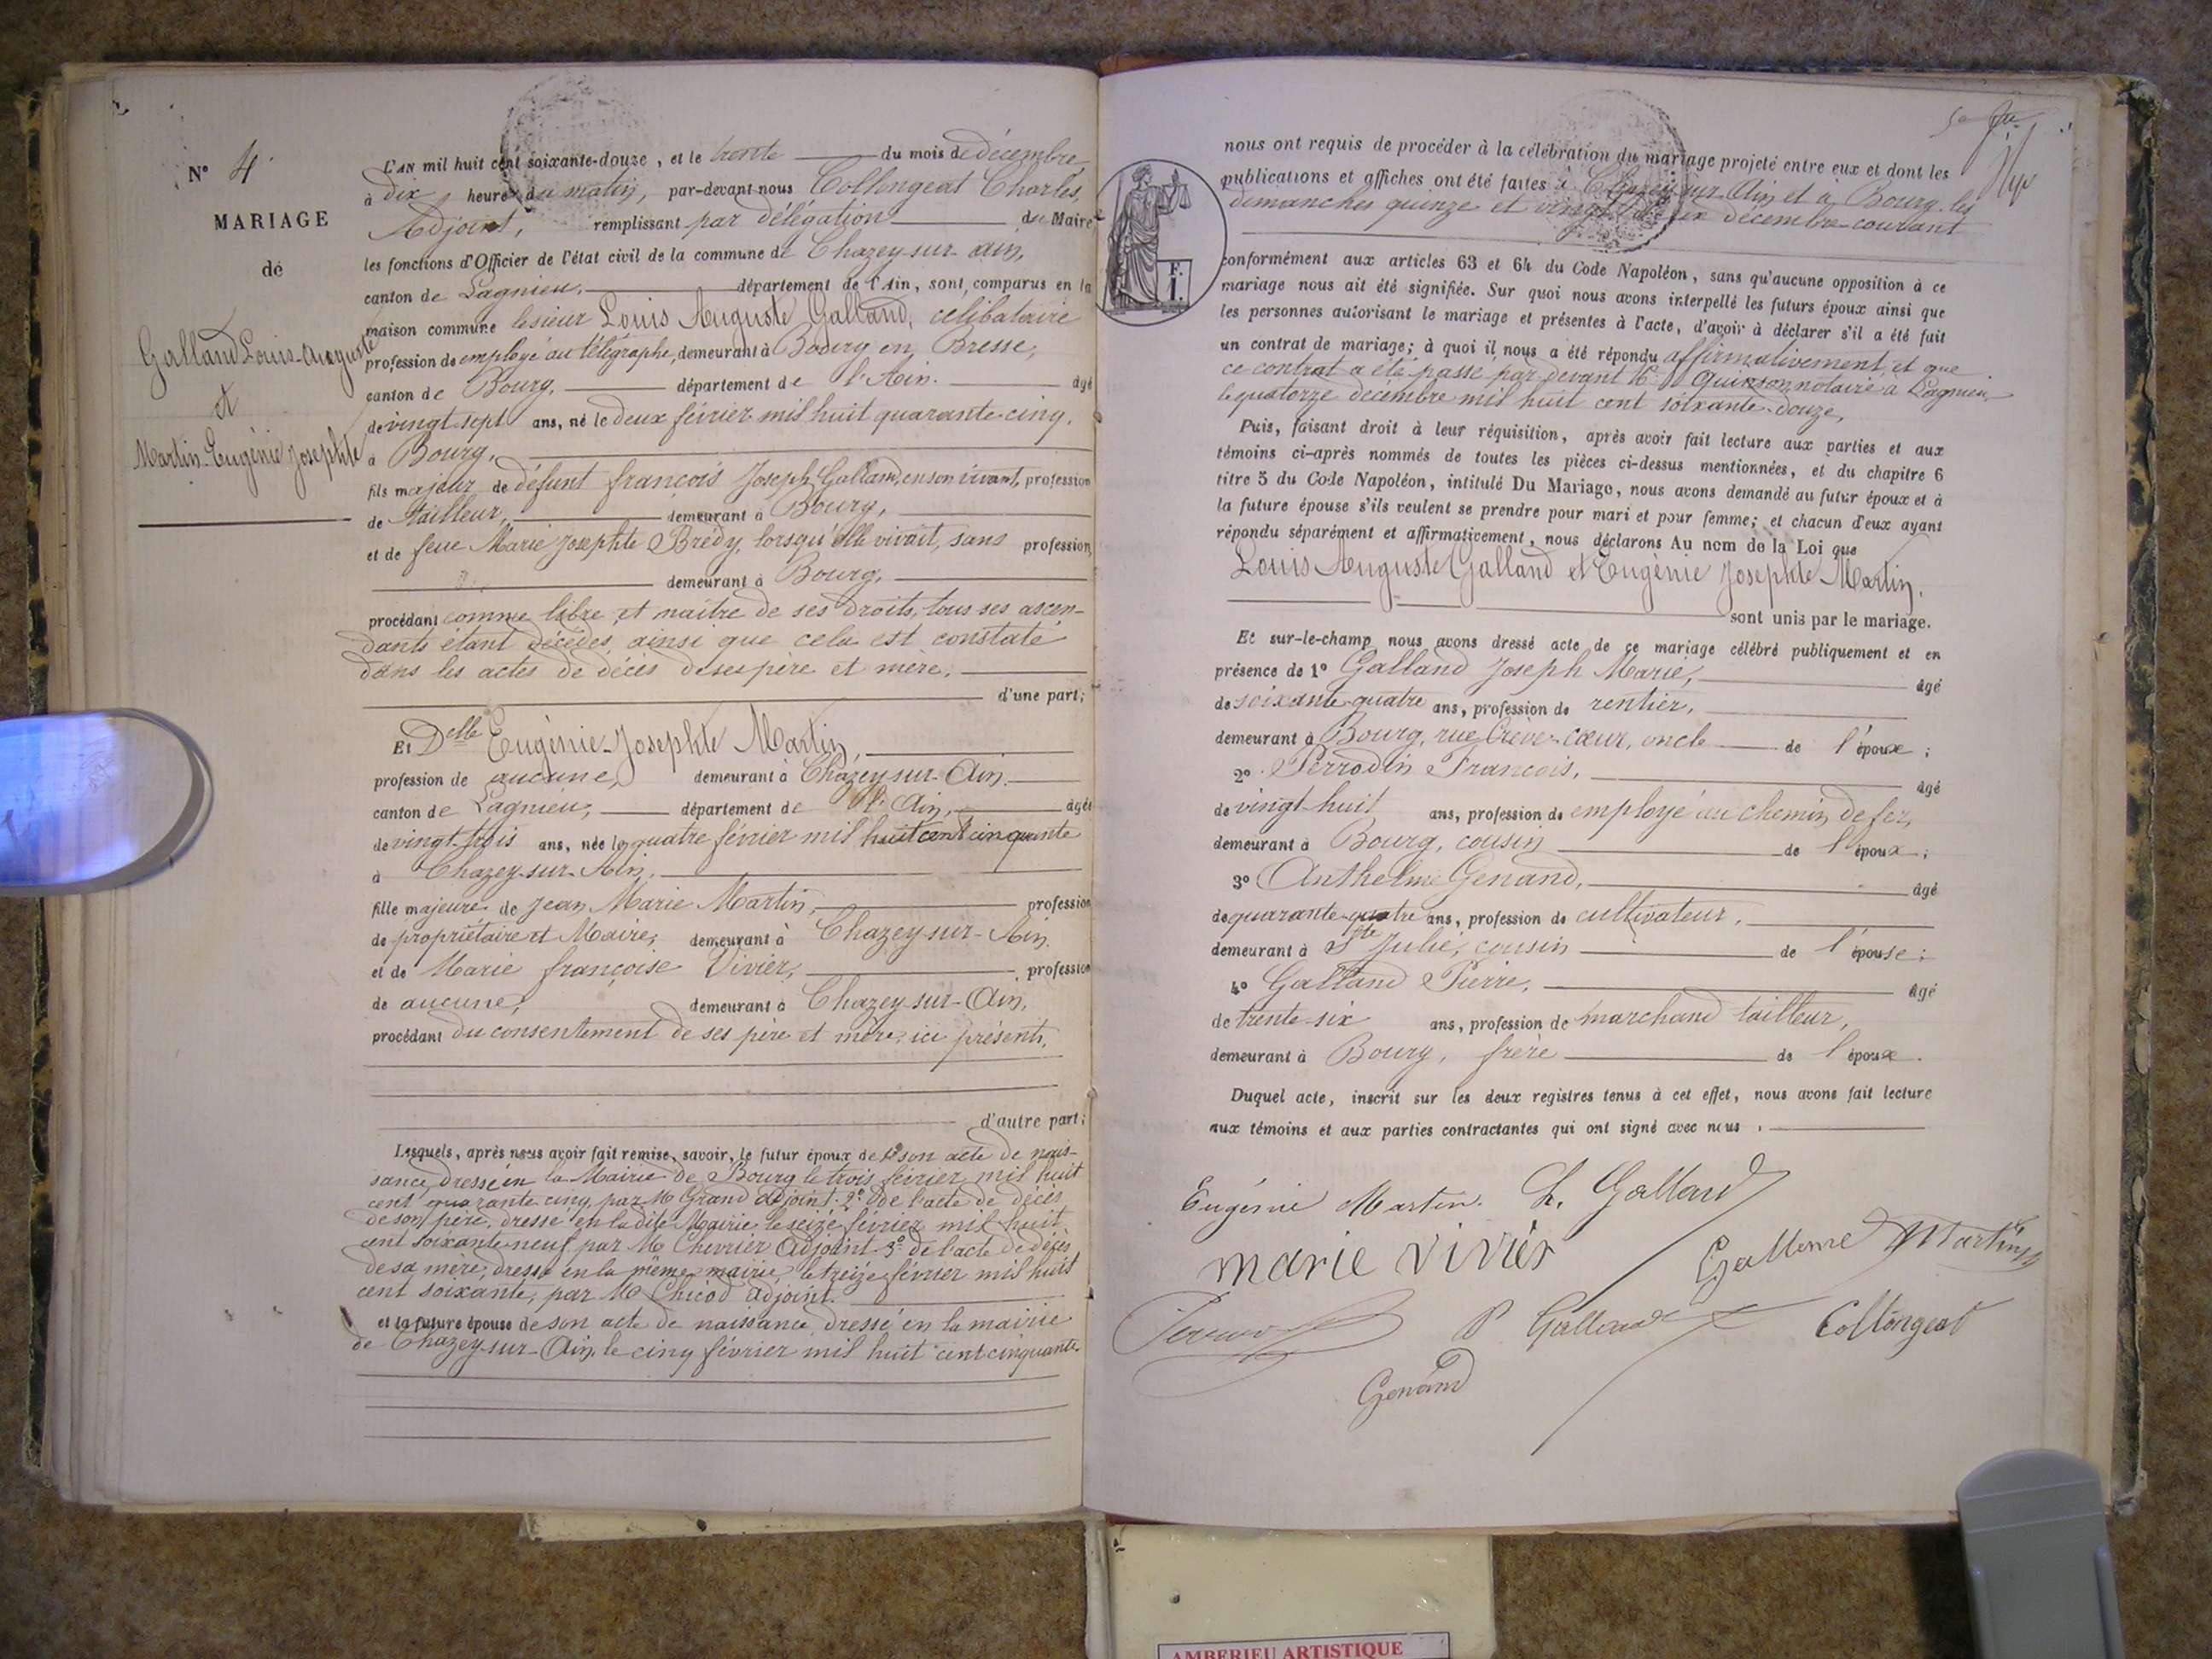 N° 4
MARIAGE
de
Galland Louis-Auguste
et
Martin-Eugénie Josephte
L'AN mil huit cent soixante-douze, et le trente du mois de décembre
à dix heures du matin, par-devant nous Collongeat Charles,
Adjoint, remplissant par délégation du Maire
les fonctions d'Officier de l'état civil de la commune de Chazey-sur-Ain,
canton de Lagnieu, département de l'Ain, sont comparus en la
maison commune le sieur Louis Auguste Galland, célibataire
profession de employé au télégraphe, demeurant à Bourg en Bresse,
canton de Bourg, département de l'Ain. âgé
de vingt sept ans, né le deux février mil huit quarante-cinq,
à Bourg,
fils majeur de défunt françois Joseph Galland, en son vivant, profession
de tailleur, demeurant à Bourg,
et de feue Marie Josephte Brédy, lorsqu'elle vivait, sans profession
demeurant à Bourg,
procédant comme libre et maître de ses droits, tous ses ascen-
dants étant décédés, ainsi que cela est constaté
dans les actes de décès de ses père et mère.
d'une part;
Et Delle Eugénie-Josephte Martin,
profession de aucune, demeurant à Chazey-sur-Ain.
canton de Lagnieu, département de l'Ain, âgée
de vingt-trois ans, née le quatre février mil huit cent cinquante
à Chazey-sur-Ain,
fille majeure de Jean Marie Martin, profession
de propriétaire et Maire, demeurant à Chazey-sur-Ain.
et de Marie françoise Vivier, profession
de aucune, demeurant à Chazey-sur-Ain,
procédant du consentement de ses père et mère, ici présents,
d'autre part;
Lesquels, après nous avoir fait remise, savoir, le futur époux de 1° son acte de nais-
sance, dressé en la Mairie de Bourg le trois février mil huit
cent quarante cinq, par M. Grand adjoint. 2° de l'acte de décès
de son père, dressé en la dite Mairie le seize février mil huit
cent soixante-neuf par M. Chevrier Adjoint. 3° de l'acte de décès
de sa mère, dressé en la même mairie, le treize février mil huit
cent soixante, par M. Chicod adjoint.
et la future épouse de son acte de naissance dressé en la mairie
de Chazey-sur-Ain, le cinq février mil huit cent cinquante.
nous ont requis de procéder à la célébration du mariage projeté entre eux et dont les
publications et affiches ont été faites à Chazey-sur-Ain et à Bourg les
dimanches quinze et vingt deux décembre-courant
F.
I.
conformément aux articles 63 et 64 du Code Napoléon, sans qu'aucune opposition à ce
mariage nous ait été signifiée. Sur quoi nous avons interpellé les futurs époux ainsi que
les personnes autorisant le mariage et présentes à l'acte, d'avoir à déclarer s'il a été fait
un contrat de mariage; à quoi il nous a été répondu affirmativement, et que
ce contrat a été passé par devant Me Quinson notaire à Lagnieu,
le quatorze décembre mil huit cent soixante-douze,
Puis, faisant droit à leur réquisition, après avoir fait lecture aux parties et aux
témoins ci-après nommés de toutes les pièces ci-dessus mentionnées, et du chapitre 6
titre 5 du Code Napoléon, intitulé Du Mariage, nous avons demandé au futur époux et à
la future épouse s'ils veulent se prendre pour mari et pour femme; et chacun d'eux ayant
répondu séparément et affirmativement, nous déclarons Au nom de la Loi que
Louis Auguste Galland et Eugénie Josephte Martin,
sont unis par le mariage.
Et sur-le-champ nous avons dressé acte de ce mariage célébré publiquement et en
présence de 1° Galland Joseph Marie, âgé
de soixante-quatre ans, profession de rentier,
demeurant à Bourg, rue Crève-cœur, oncle de l'époux;
2° Perrodin François, âgé
de vingt-huit ans, profession de employé au chemin de fer,
demeurant à Bourg, cousin de l'époux;
3° Anthelme Genand, âgé
de quarante-quatre ans, profession de cultivateur,
demeurant à Ste Julie, cousin de l'épouse;
4° Galland Pierre, âgé
de trente-six ans, profession de marchand tailleur,
demeurant à Bourg, frère de l'époux.
Duquel acte, inscrit sur les deux registres tenus à cet effet, nous avons fait lecture
aux témoins et aux parties contractantes qui ont signé avec nous.
Eugénie Martin. L. Galland
marie vivier Galland Martin
P Galland Collongeat
Genand
AMBERIEU ARTISTIQUE